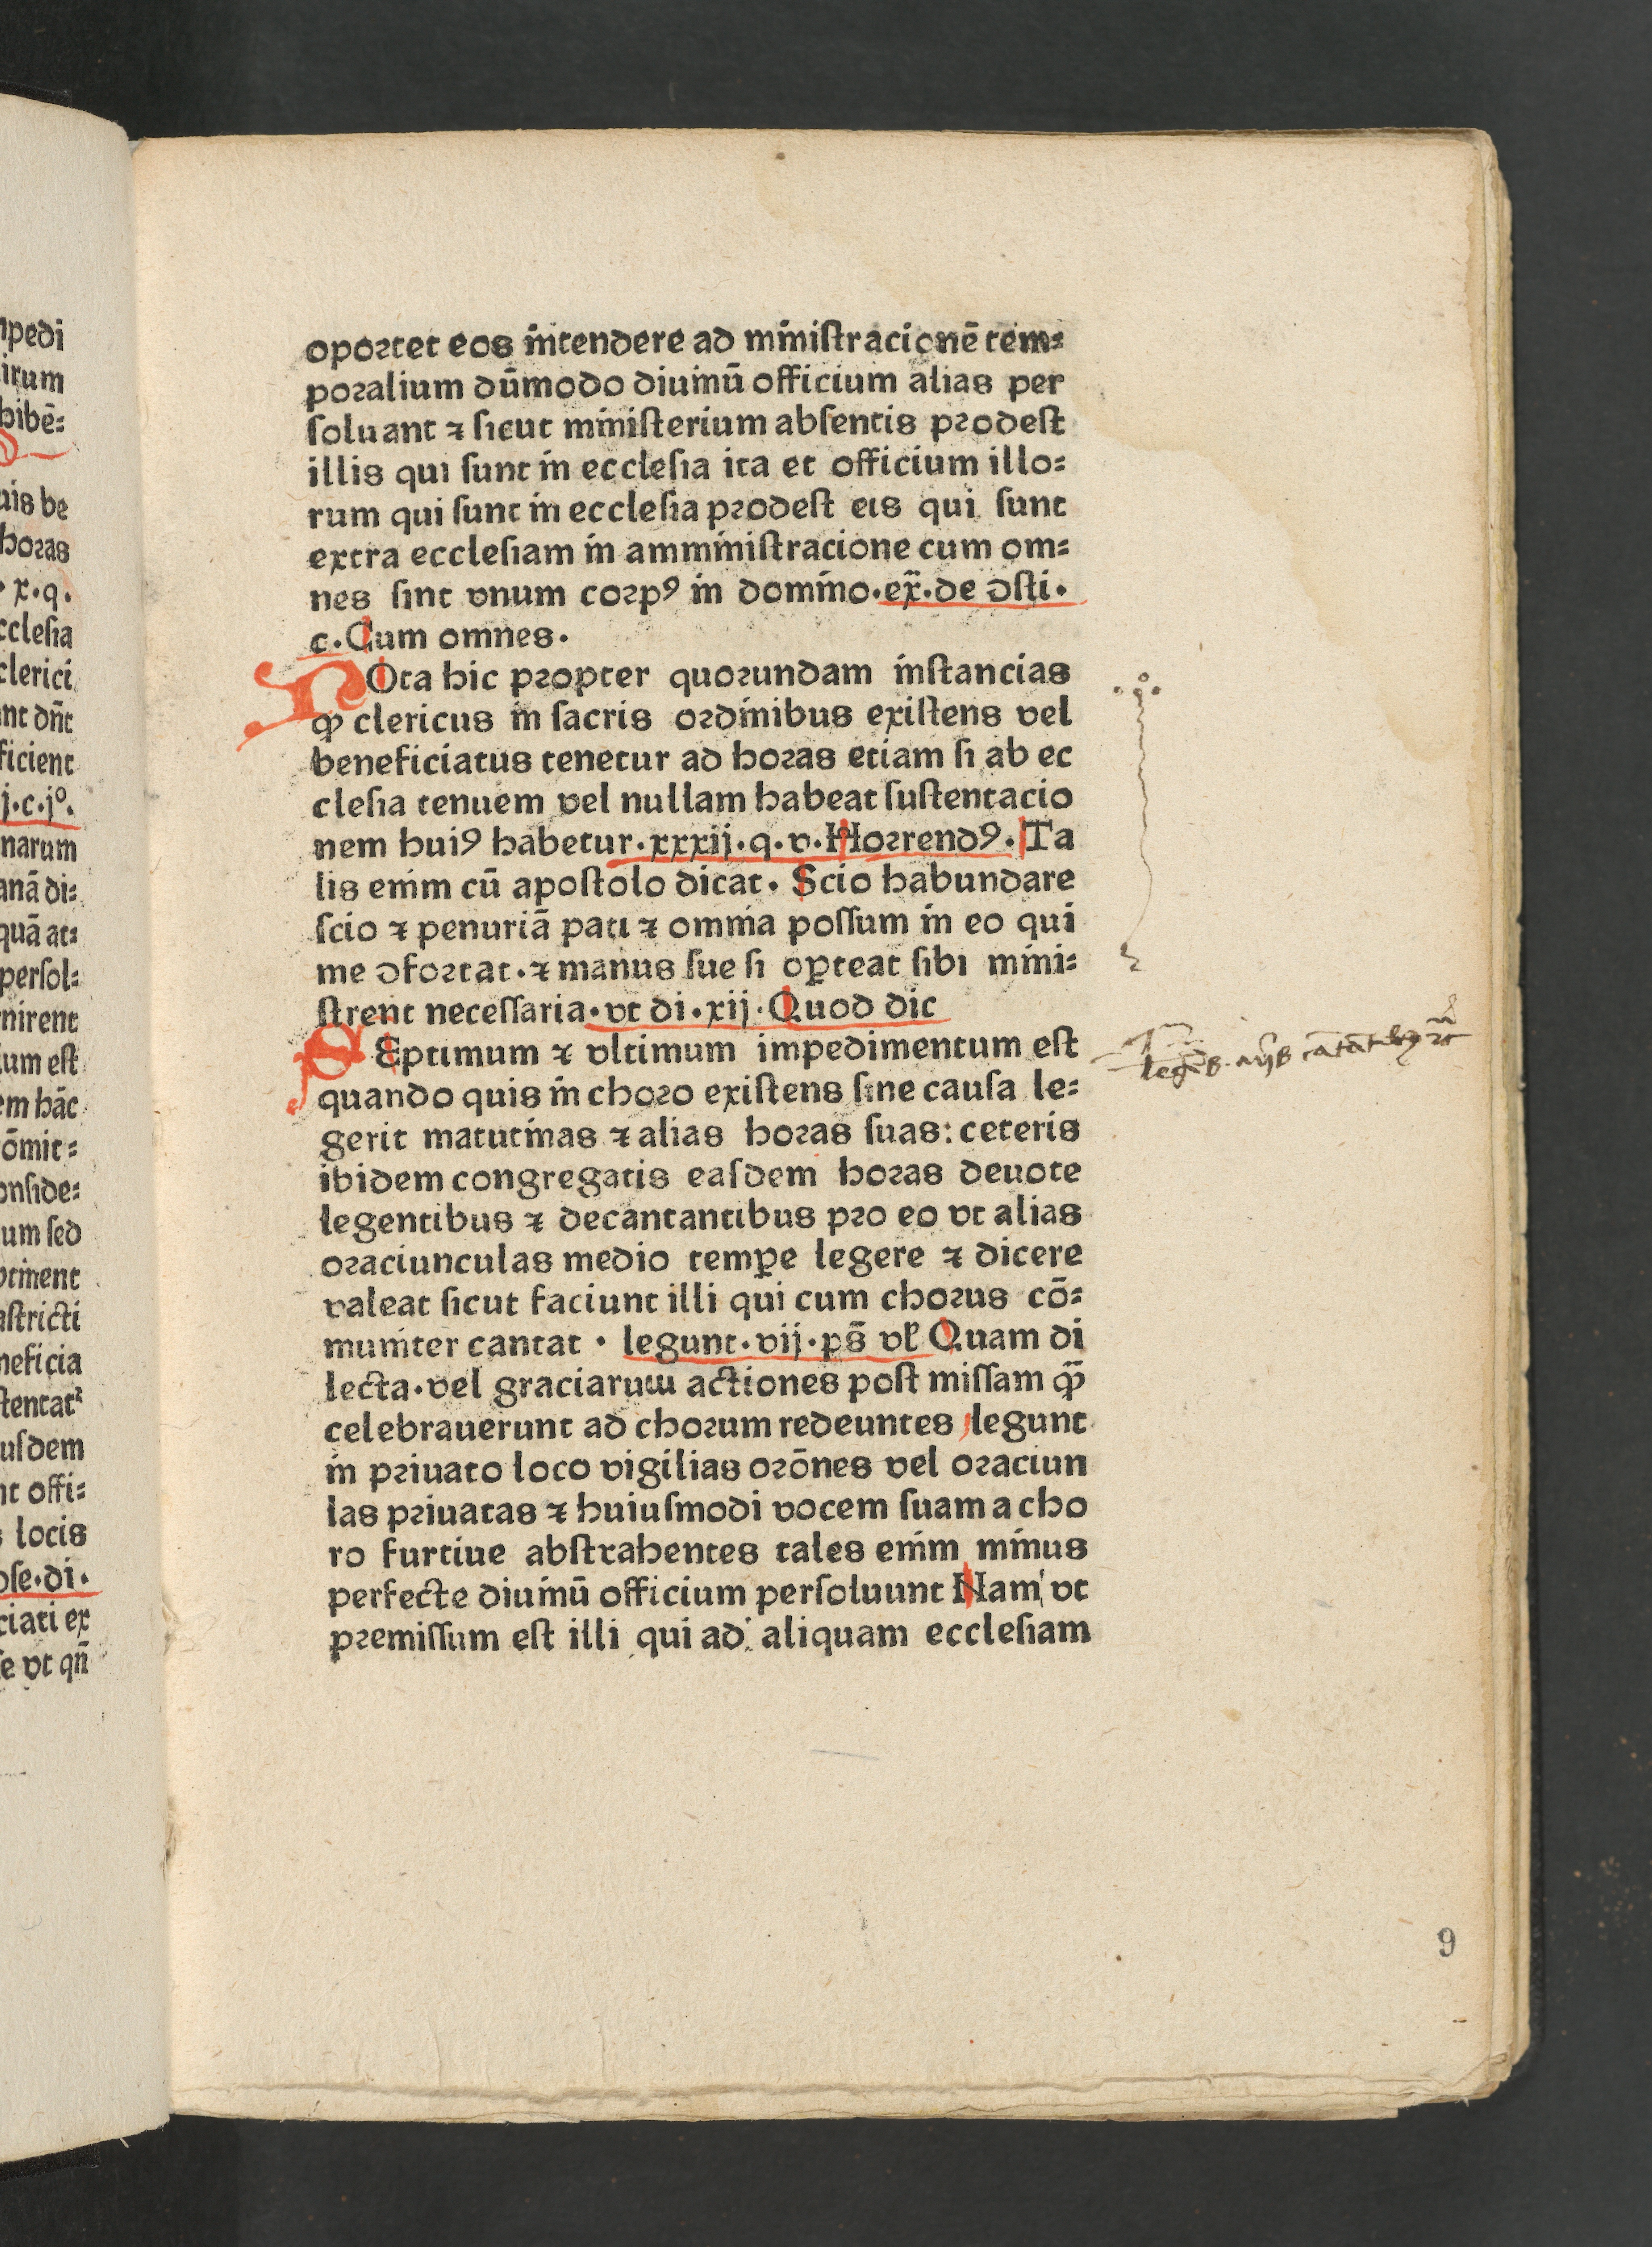 oportet eos intendere ad ministracionē tem⸗
poralium dūmodo diuinū officium alias per
ſoluant ⁊ ſicut miniſterium abſentis prodeſt
illis qui ſunt in eccleſia ita et officium illo⸗
rum qui ſunt in eccleſia prodeſt eis qui ſunt
extra eccleſiam in amminiſtracione cum om⸗
nes ſint vnum corpꝰ in domino.ex̄.de ↄſti.
c.Cum omnes.
NOta hic propter quorundam inſtancias
ꝙ clericus in ſacris ordinibus exiſtens vel
beneficiatus tenetur ad horas etiam ſi ab ec
cleſia tenuem vel nullam habeat ſuſtentacio
nem huiꝰ habetur.xxxij.q.v.Horrendꝰ.Ta
lis enim cū apoſtolo dicat. Scio habundare
ſcio ⁊ penuriā pati ⁊ omnia poſſum in eo qui
me ↄfortat.⁊ manus ſue ſi oꝑteat ſibi mini⸗
ſtrent neceſſaria.vt di.xij.Quod dic
SEptimum ⁊ vltimum impedimentum eſt
quando quis in choro exiſtens ſine cauſa le⸗
gerit matutinas ⁊ alias horas ſuas: ceteris
ibidem congregatis eaſdem horas deuote
legentibus ⁊ decantantibus pro eo vt alias
oraciunculas medio tempe̱ legere ⁊ dicere
valeat ſicut faciunt illi qui cum chorus cō⸗
muniter cantat . legunt.vij.ps̄ vł Quam di
lecta.vel graciarum actiones poſt miſſam ꝙ̄
celebrauerunt ad chorum redeuntes legunt
in priuato loco vigilias orōnes vel oraciun
las priuatas ⁊ huiuſmodi vocem ſuam a cho
ro furtiue abſtrahentes tales enim minus
perfecte diuinū officium perſoluunt Nam vt
premiſſum eſt illi qui ad aliquam eccleſiam
9